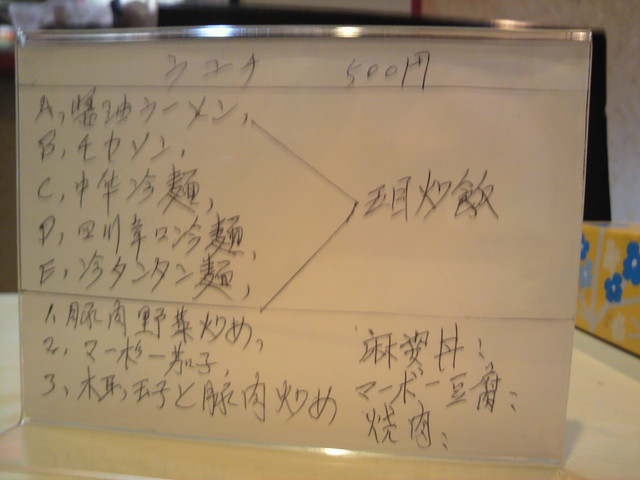 ラユチ 500円
A, 醤油ラーメン,
B, チカソン,
C, 中华冷麺,
D, 四川辛口冷麺,
E, 冷タンタン麺,
五目炒飲
1, 豚肉野菜炒め,
2, マー杉ー茄子,
3, 木耳玉子と豚肉炒め
麻婆丼;
マーボー豆腐;
焼肉;